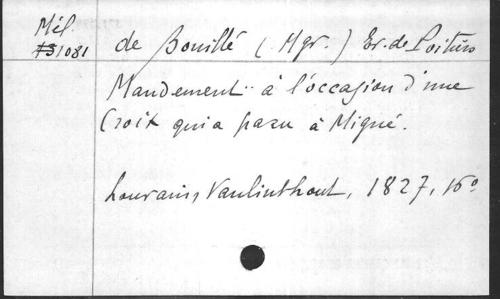 Mél.
1081
de Bouillé (Mgr.) Ev. de Poitiers
Mandement.. à l'occasion d'une
Croix qui a paru à Migné.
Louvain, Vanlinthout, 1827, 16º